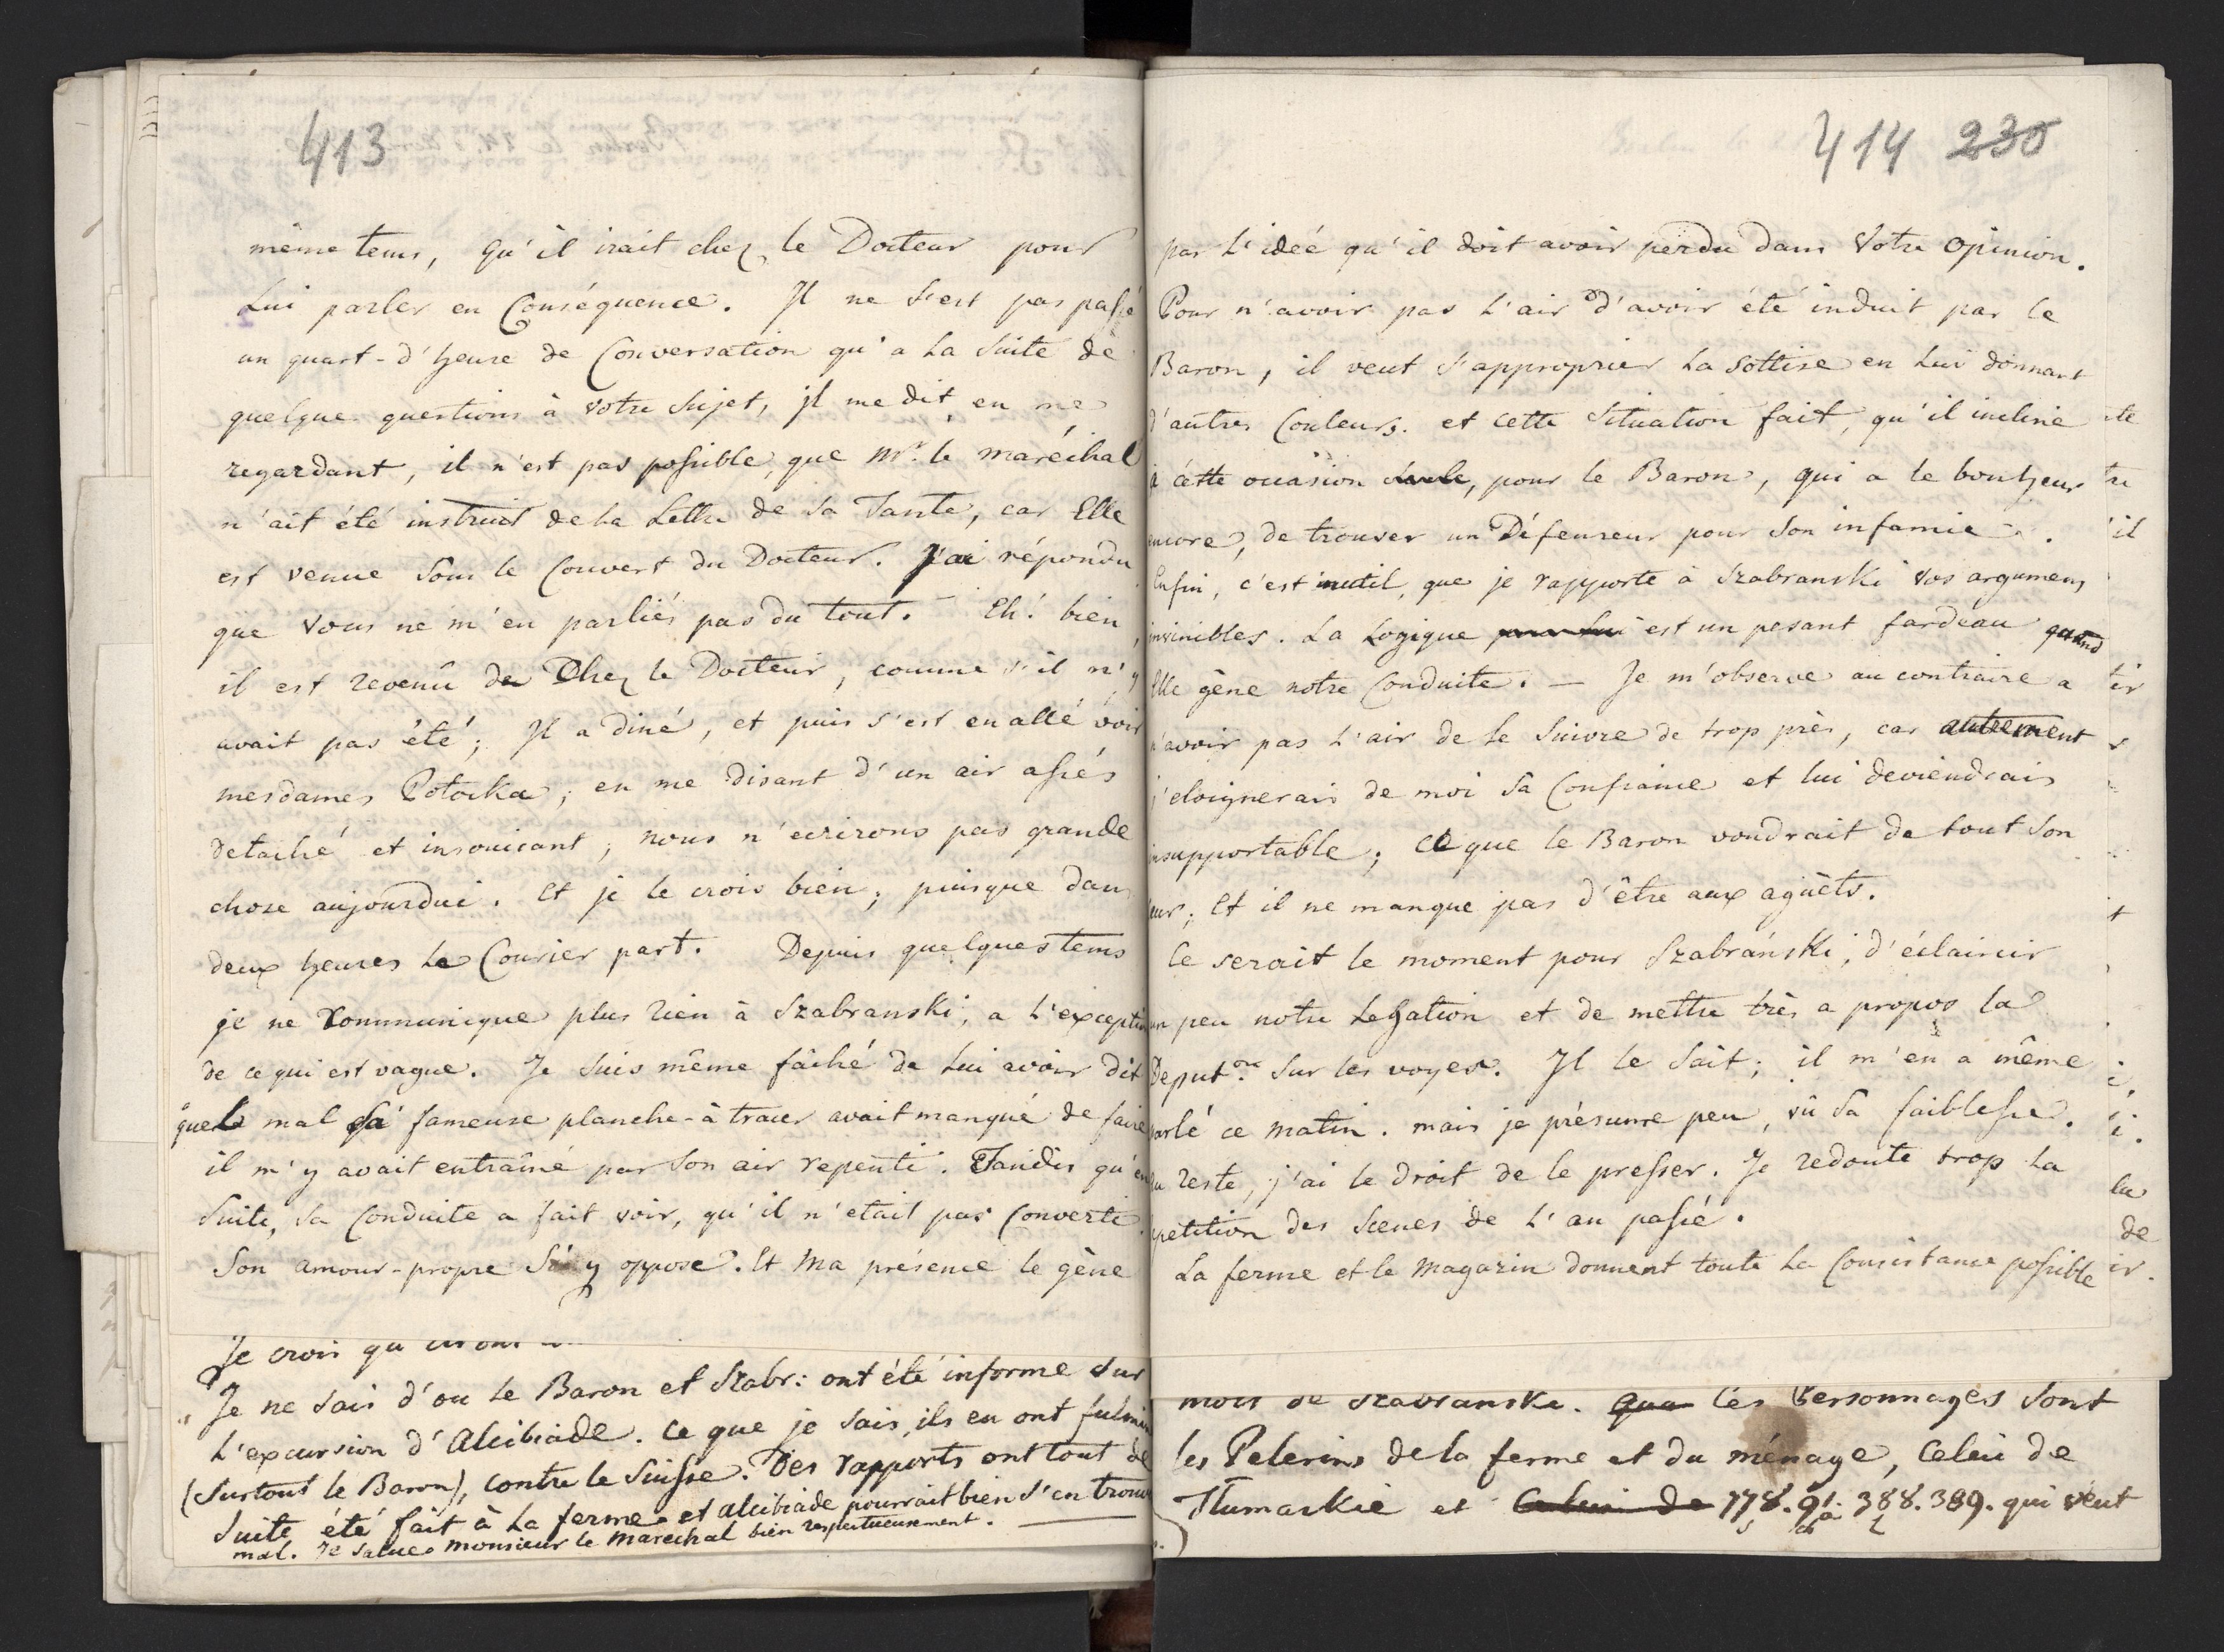 413
même tems, qu'il irait chez le Docteur pour
Lui parler en Conséquence. Il ne s'est pas passé
un quart-d'heure de Conversation qu'a La Suite de
quelque questions à votre Sujet, il me dit en me
regardant, il n'est pas possible, que Mr. le maréchal
n'ait été instruit de la Lettre de Sa Tante, car Elle
est venue Sous le Couvert du Docteur. J'ai répondu
que Vous ne m'en parliés pas du tout. Eh! bien,
il est revenû de Chez le Docteur, comme s'il n'y
avait pas été; Il a diné, et puis s'est en allé voir
mesdames Potocka; en me disant d'un air assés
detaché et insouciant, nous n'ecrirons pas grande
chose aujourdui. Et je le crois bien; puisque dans
deux heures Le Courier part. Depuis quelques tems
je ne Communique plus rien à Szabranski, a L'exception
de ce qui est vague. Je Suis même fâché de Lui avoir dit
quel mal Sa fameuse planche-à tracer avait manqué de faire
il m'y avait entraîné par Son air repenti. Tandis qu'en
Suite, Sa Conduite a fait voir, qu'il n'etait pas Converti.
Son amour-propre S'y oppose. Et Ma présence le gène
Je crois qu
Je ne Sais d'ou Le Baron et Szabr: ont été informe Sur
L'excursion d'Alcibiade. Ce que je Sais, ils en ont fulminé
(Surtout le Baron), contre le Suisse. Des rapports ont tout de
Suite été fait à La ferme et Alcibiade pourrait bien s'en trouver
mal. Je Salue Monsieur le Marechal bien respectueusement.
414 230
par L'ideé qu'il doit avoir perdu dans Votre opinion.
Pour n'avoir pas L'air d'avoir été induit par le
Baron, il veut S'approprier La Sottise en Lui donnant
d'autres Couleurs. et cette Situation fait, qu'il incline
à cétte occasion Seule, pour le Baron, qui a le bonheur
encore, de trouver un Défenseur pour Son infamie.
Enfin, c'est inutil, que je rapporte à Szabranski Vos argumens
invinibles. La Logique pour Lui est un pesant fardeau quand
Elle gêne notre Conduite. — Je m'observe au contraire a
n'avoir pas L'air de le Suivre de trop près, car autrement
j'eloignerais de moi Sa Confiance et lui deviendrais
insupportable; ce que le Baron voudrait de tout Son
Coeur; Et il ne manque pas d'être aux agüêts.
Ce serait le moment pour Szabranski, d'éclaircir
un peu notre Legation et de mettre très a propos la
Deputon. Sur les voyes. Il le Sait; il m'en a même
parlé ce matin. mais je présume peu, vû Sa faiblesse.
Du reste, j'ai le droit de le presser. Je redoute trop La
repetition des Scenes de L'an passé.
La ferme et le Magazin donnent toute La Consistance possible
mois de Szabranski. Que les Personnages Sont
les Pelerins de la ferme et du ménage, Celui de
Tlumaskie et Celui de 778. 91. 388. 389. qui veut